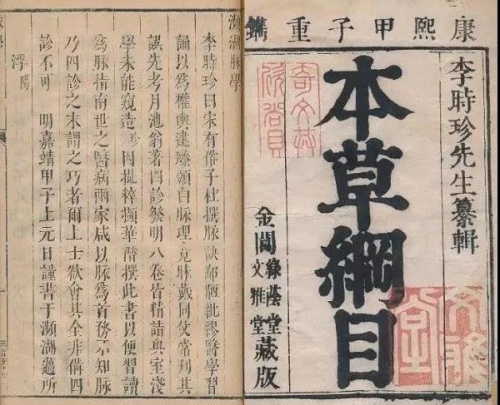 康熙甲子重鐫
李時珍先生纂輯
本草綱目
金閶
綠蔭堂
文雅堂
藏版
奇文共欣賞
文雅堂
瀕湖脉學
李時珍曰宋有俗子杜撰脉訣鄙陋紕繆醫學習
誦以爲權輿逮臻頒白脉理竟昧戴同父常刋其
誤先考月池翁著四診發明八卷皆精詣奥室淺
學未能窺造珍因撮粹擷華僣撰此書以便習讀
爲脉指南世之醫病兩家咸以脉爲首務不知脉
乃四診之末謂之巧者爾上士欲會其全非備四
診不可 明嘉靖甲子上元日謹書于瀕湖薖所
浮 陽